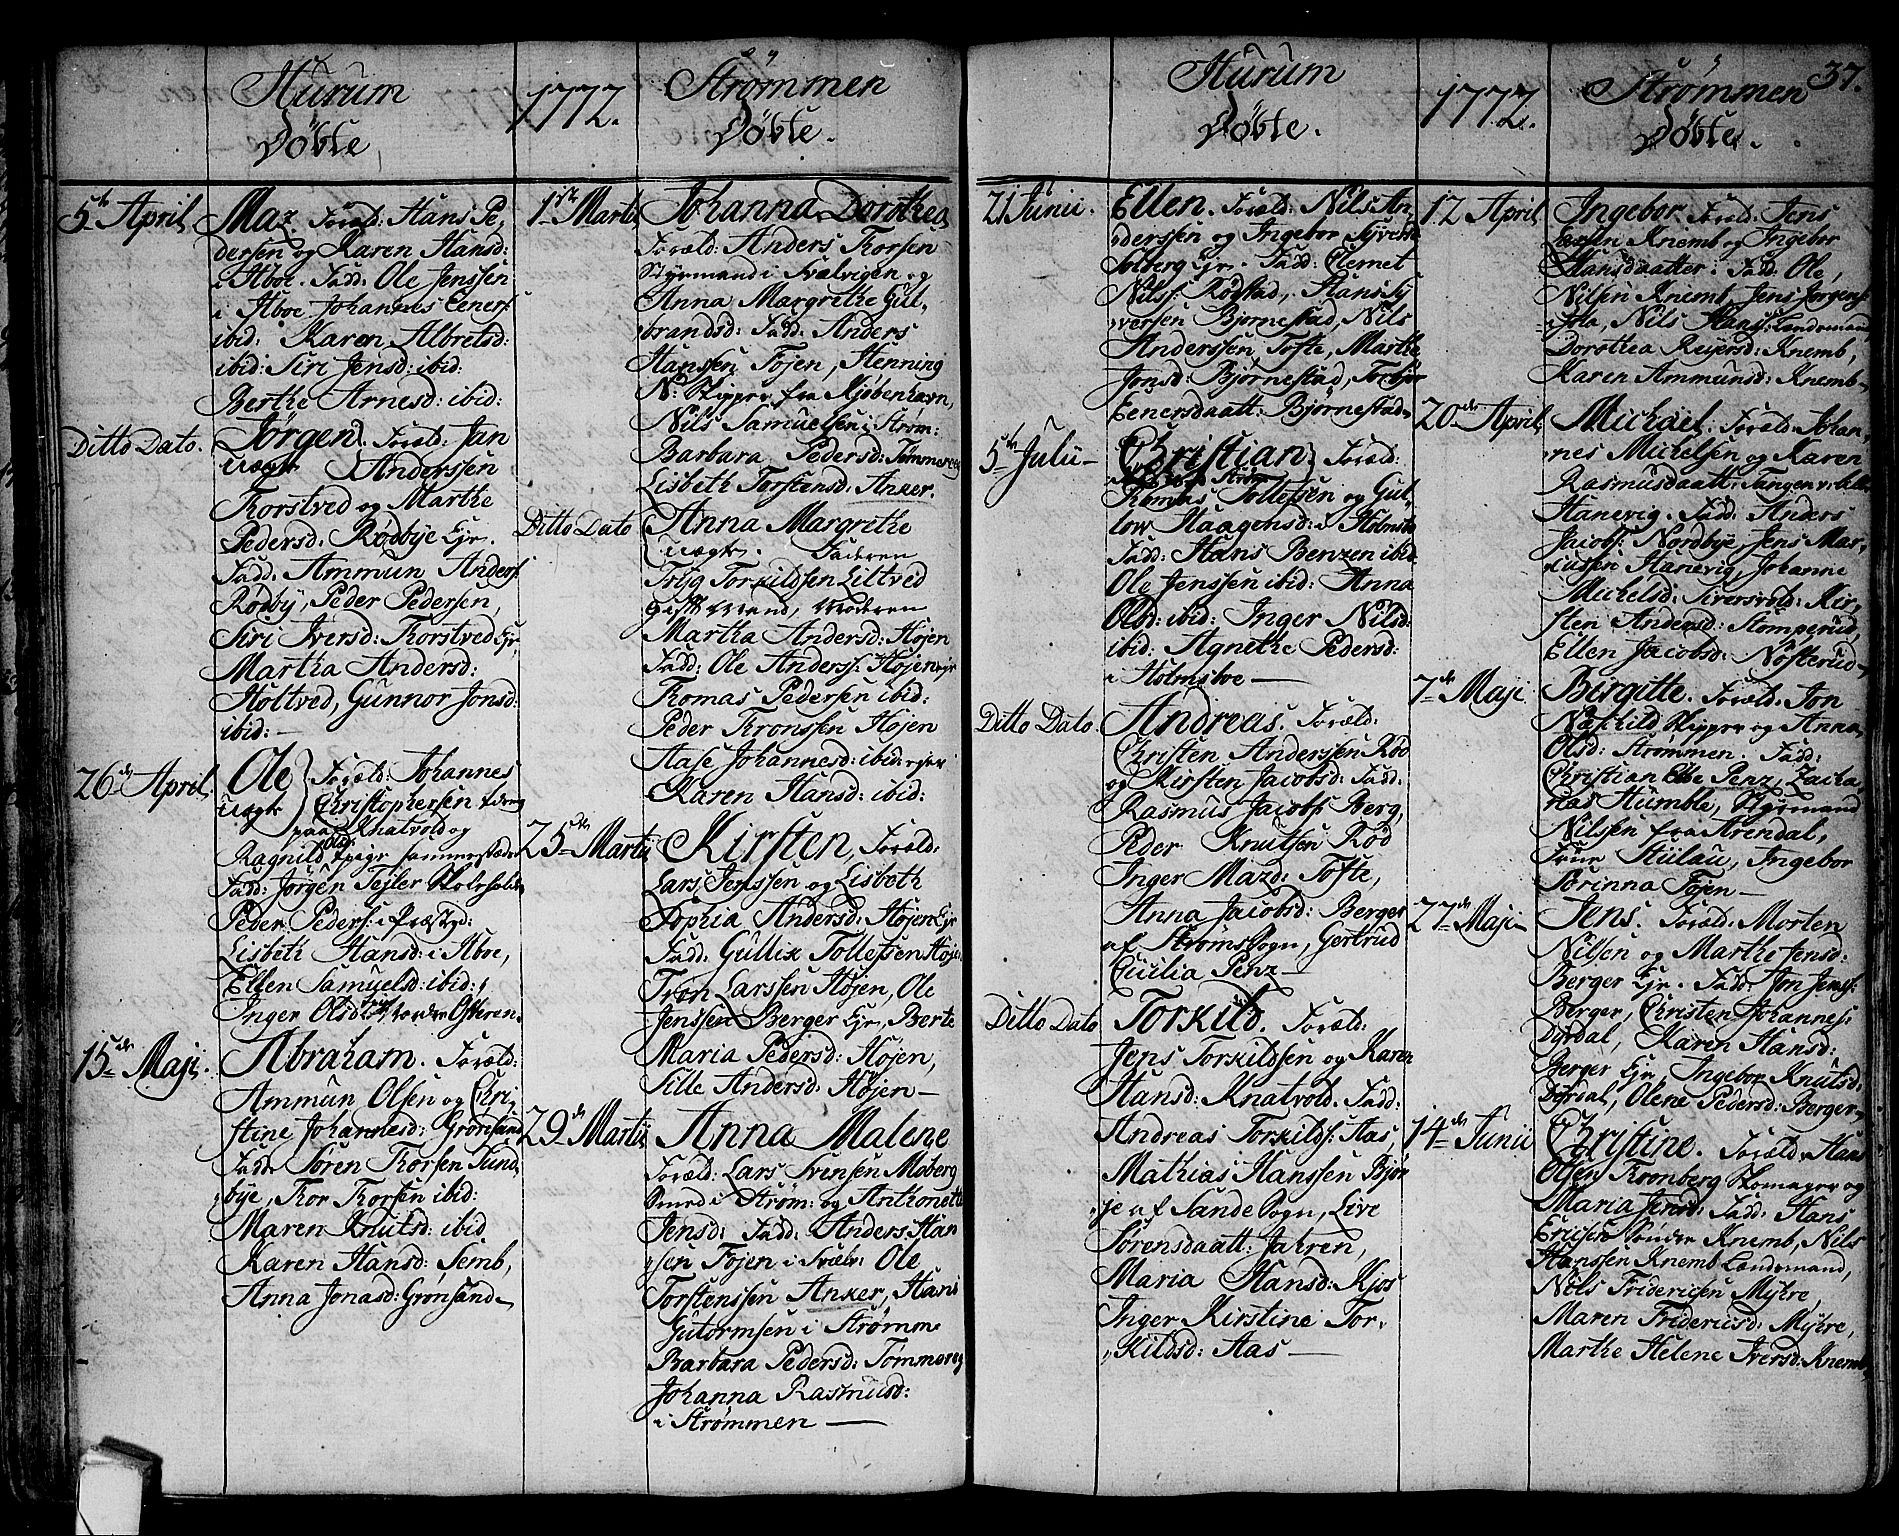 Hurum
Døbte
1772.
Strømmen
Døbte.
5te April
Maz. Foræld: Hans Pe,
dersen og Karen Hansd:
i Aboe. Fadd: Ole Jenssen
i Aboe Johannes Eeners:
ibid: Karen Albretsd:
ibid: Siri Jensd: ibid:
Berthe Arnesd: ibid:
Ditto Dato.
Jørgen Foræld: Jan
uægte Anderssen
Thorstved og Marthe
Pedersd: Rødbye Ejr.
Fadd: Ammun Anders:
Rødby, Peder Pedersen,
Siri Iversd: Thorstved Ejr,
Martha Andersd:
Holtved, Gunnor Jonsd:
ibid: —
26de April
Ole Foræld: Johannes
uægte Christophersen
paa Knatvold og
Ragnild Olsd:
Fadd: Jørgen Tejler Skoleholder
Peder Peders: i Præstgd:
Lisbeth Hansd: i Aboe,
Ellen Samuelsd: ibid:
Inger Olsd:
15de Maji.
Abraham. Foræld:
Ammun Olsen og Chri,
stine Johannesd: Grønsand
Fadd: Søren Thorsen Sund,
bye, Thor Thorsen ibid:
Maren Knutsd: ibid
Karen Hansd: Semb,
Anna Jonasd: Grønsand—
1ste Martii
Johanna Dorothea
Foræld: Anders Thorsen
Styrmand i Svælvigen og
Anna Margrethe Gul,
brandsd: Fadd: Anders
Hanssen Føjen, Henning
N: Skipper fra Kjøbenhavn,
Nils Samuelsen i Strøm:
Barbara Pedersd: Tømmeraas
Lisbeth Torstensd: Anker.
Ditto Dato
Anna Margrethe
uægte. Faderen
Torkildsen Liltved
gift Mand, Moderen
Martha Andersd: Højen
Fadd: Ole Anders: Højen ejr
Thomas Pedersen ibid:
Peder Thronssen Højen
Aase Johannesd: ibid: ejer
Karen Hansd: ibid:
25de Martii
Kirsten, Foræld:
Lars Jenssen og Lisbeth
Sophia Andersd: Højen Ejr
Fadd: Gullix Tollefsen Højen
Tron Larssen Højen, Ole
Jenssen Berger Ejr, Berte
Maria Pedersd: Højen,
Sille Andersd: Højen—
29de Martii
Anna Malene
Foræld: Lars Svensen Moberg
Smed i Strøm: og Anthonette
Jensd: Fadd: Anders Han
ssen Føjen i Svælv: Ole
Torstenssen Anker, Hans
Gutormsen i Strømm:
Barbara Pedersd: Tømmeraas
Johanna Rasmusd:
i Strømmen —
Hurum
Døbte.
1772.
Strømmen
Døbte.
37.
21 Junii.
Ellen. Foræld: Nils An,
derssen og Ingebor Syvers:
Solberg Ejr. Fadd: Clemet
Nils: Rødstad, Hans Sy
versen Bjørnestad, Nils
Anderssen Tofte, Marthe
Jonsd: Bjørnestad, Torbjør
Eenersdaatt: Bjørnestad.
5te Julii—
Christian Foræld:
Thomas Tollefsen og Gul,
low Haagensd: i Holmsbo
Fadd: Hans Benzen ibid
Ole Jenssen ibid: Anna
Olsd: ibid: Inger Nilsd:
ibid: Agnethe Pedersd:
i Holmsboe —
Ditto Dato.
Andreas. Foræld:
Christen Anderssen Rød
og Kirsten Jacobsd: Fadd:
Rasmus Jacobs: Berg,
Peder Knutsen Rød
Inger Mazd: Tofte,
Anna Jacobsd: Berger
af Strøms Sogn, Gertrud
Cicilia Penz—
Ditto Dato
Torkild. Foræld:
Jens Torkildsen og Karen
Hansd: Knatvold. Fadd:
Andreas Torkilds: Aas,
Mathias Hanssen Bjør
je af Sande Sogn, Live
Sørensdaatt: Jahren,
Maria Hansd: Kjos
Inger Kirstine Tor,
kildsd: Aas —
12 April
Ingebor Foræld: Jens
Larsen Knemb og Ingebor
Hansdaatter: Fadd: Ole,
Nilsen Knemb, Jens Jørgens:
Nils Hanss: Landsmand
Dorothea Reyersd: Knemb,
Karen Ammunsd: Knemb—
20de April
Michael. Foræld: Johan,
nes Michelsen og Karen
Rasmusdaatt: Tangen
Hanevig. Fadd: Anders
Jacobs: Nordbye, Jens Mar,
cussen Hanevig, Johanne
Michelsd: Siversvold: Kir,
sten Andersd: Stomperud,
Ellen Jacobsd: Nøsterud—
7de Maji
Birgitte. Foræld: Jon
Næskild Skipper og Anna
Olsd: Strømmen. Fadd:
Christian Penz, Zacha,
rias Humble, Styrmand
Nilsen fra Arendal,
Frue Stülau, Ingebor
Sørinna Føjen—
27de Maji—
Jens. Foræld: Morten
Nilsen og Marthe Jensd:
Berger Ejr. Fadd: Jon Jens:
Berger, Christen Johannes:
Dyrdal, Karen Hansd:
Berger Ejr, Ingebor Knutsd:
Dyrdal, Olene Pedersd: Berger—
14de Junii
Christine. Foræld: Hans
Olsen Kromberg Skomager og
Maria Jensd: Fadd: Hans
Ericsen Søndre Knemb, Nils
Hanssen Knemb Landsmand,
Nils Fridericsen Myhre,
Maren Fridericsd: Myhre,
Marthe Helene Iversd: Knemb